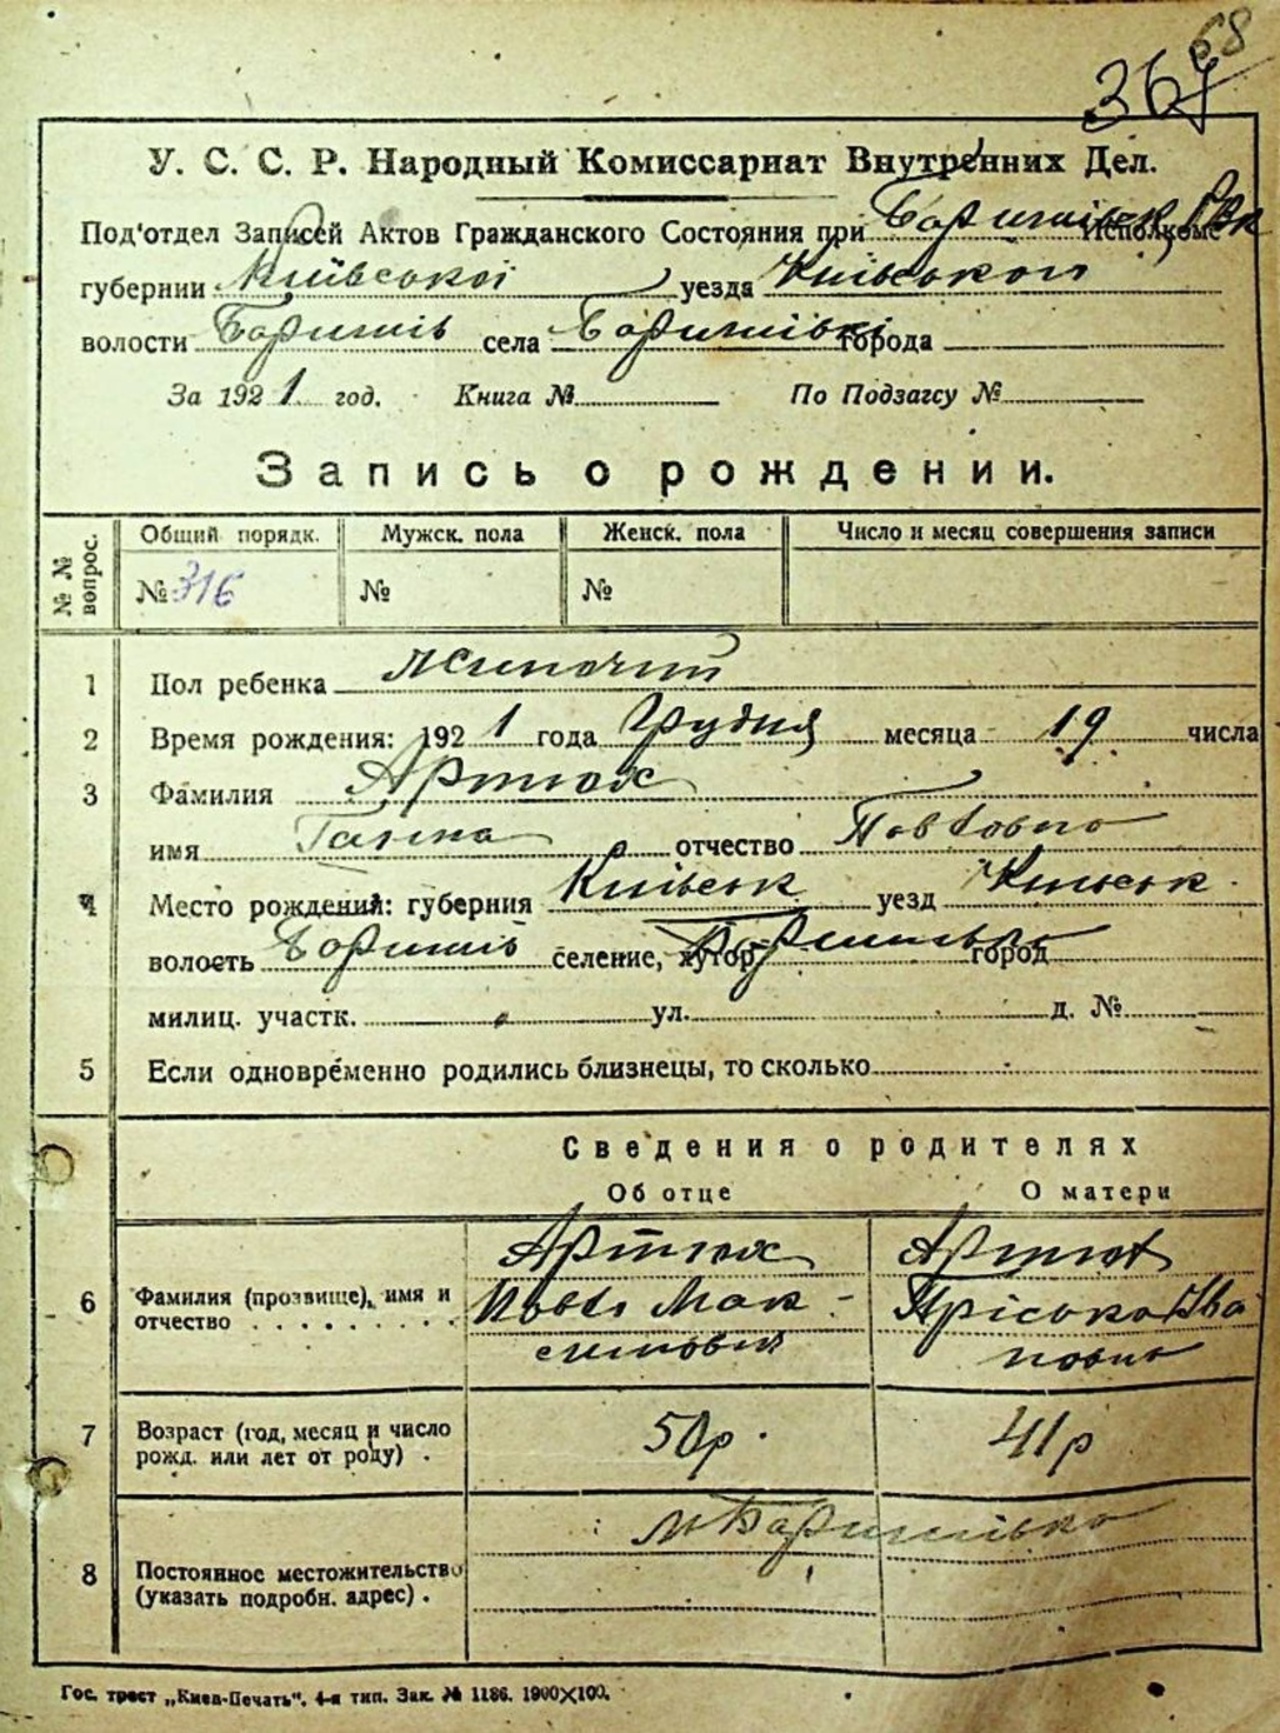 68
367
У. С. С. Р. Народный Комиссариат Внутренних Дел.
Под'отдел Записей Актов Гражданского Состояния при Баришівськ. Исполкоме
губернии Київської уезда Київського
волости Баришів села Баришівкі города
За 1921 год. Книга № По Подзагсу №
Запись о рождении.
№ № вопрос. Общий порядк. Мужск. пола Женск. пола Число и месяц совершения записи
№ 316 № №
1 Пол ребенка жіночий
2 Время рождения: 1921 года Грудня месяца 19 числа
3 Фамилия Артюх
имя Ганна отчество Павловна
4 Место рождений: губерния Київськ уезд Київськ.
волость Баришів селение, хутор Баришівка город
милиц. участк. ул. д. №
5 Если одновременно родились близнецы, то сколько
Сведения о родителях
Об отце О матери
6 Фамилия (прозвище), имя и отчество Артюх Артюх
Павло Мак- Пріська Ива
симович новна
7 Возраст (год, месяц и число рожд. или лет от роду) . 50р. 41р
8 Постоянное местожительство (указать подробн. адрес) . м Баришівка
Гос. трест „Киев-Печать“. 4-я тип. Зак. № 1186. 1900×100.